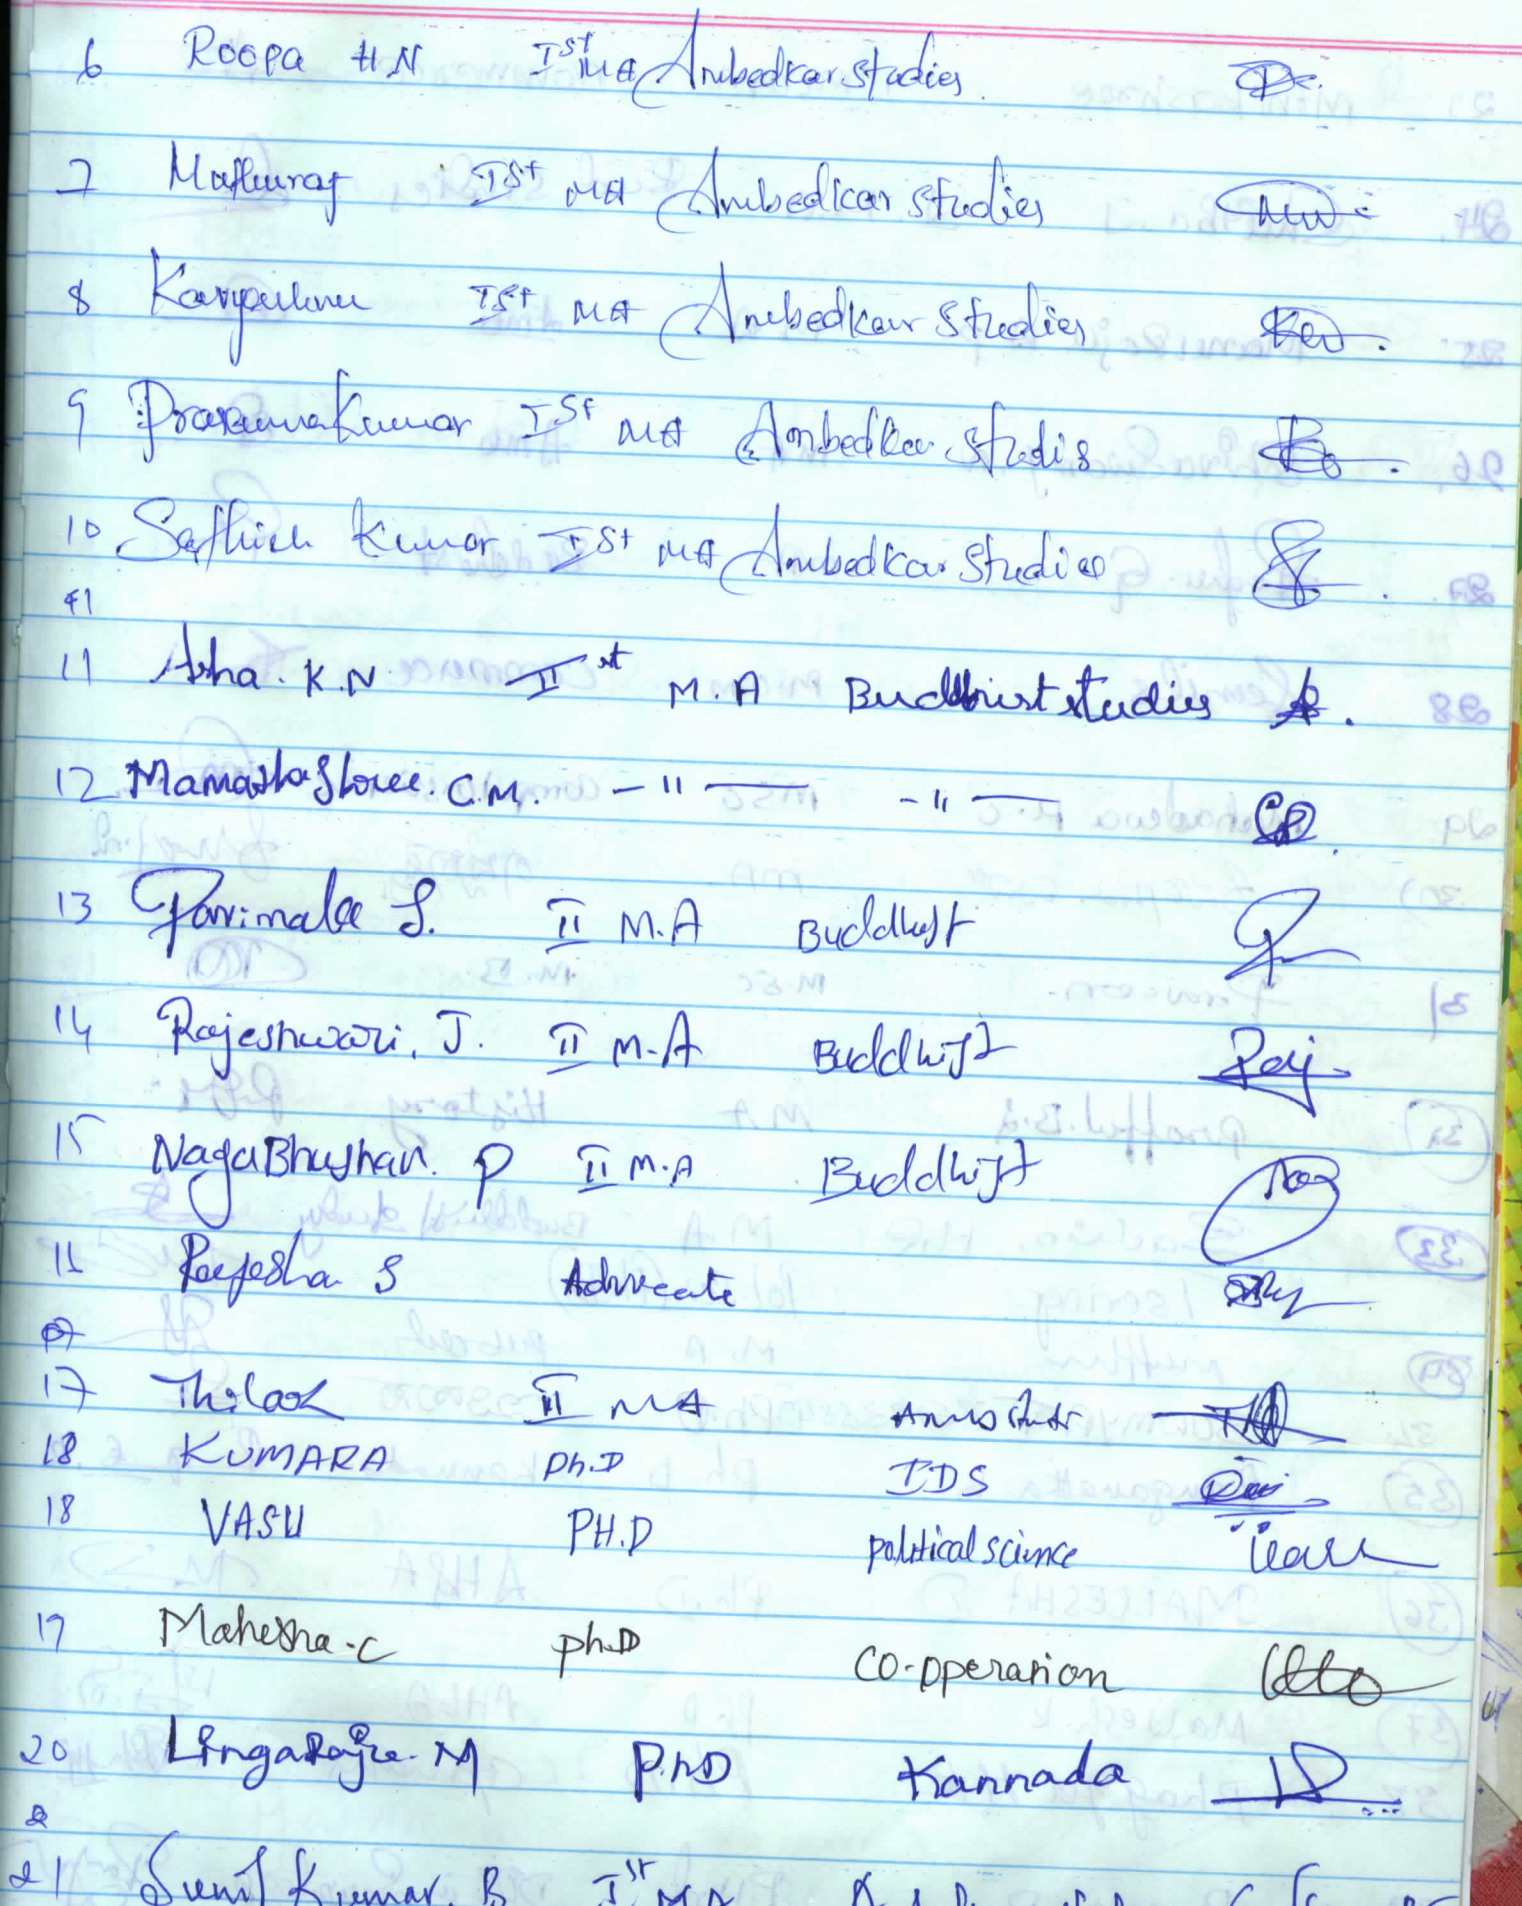 6 Roopa H.N Ist MA Ambedkar Studies
7 Muthuraj Ist MA Ambedkar Studies
8 Ist MA Ambedkar Studies
9 Prasanna Kumar Ist MA Ambedkar Studis
10 Sathish Kumar Ist MA Ambedkar Studies
11
11 Asha. K.N. II st M.A Buddhist studies
12 MamathaShree. C.M. - " - - " -
13 Parimala S. II M.A Buddhist
14 Rajeshwari. J. II M.A Buddhist Raj
15 NagaBhushan. P II M.A Buddhist
16 Rajesha S Advocate
17 II MA
18 KUMARA Ph.D IDS
18 VASU PH.D political science
19 Mahesha.C ph.D CO-operation
20 LingaRaju. M P.hD Kannada
2
21 Sunil Kumar. B Ist MA